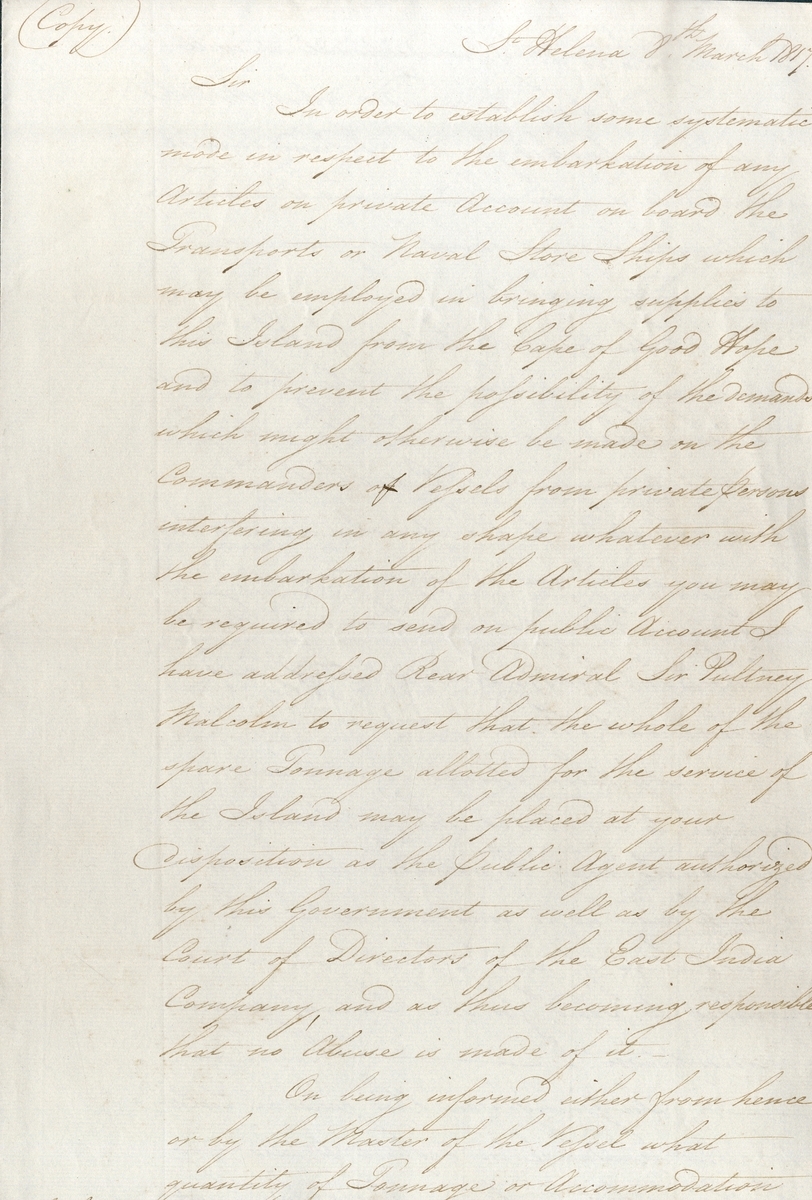 (Copy.)
St Helena 8th March 1817.
Sir
In order to establish some systematic
mode in respect to the embarkation of any
Articles on private Account on board the
Transports or Naval Store Ships which
may be employed in bringing supplies to
this Island from the Cape of Good Hope
and to prevent the possibility of the demands
which might otherwise be made on the
Commanders of Vessels from private persons
interfering in any shape whatever with
the embarkation of the Articles you may
be required to send on public Account I
have addressed Rear Admiral Sir Pultney
Malcolm to request that the whole of the
spare Tonnage allotted for the service of
the Island may be placed at your
disposition as the Public Agent authorized
by this Government as well as by the
Court of Directors of the East India
Company, and as thus becoming responsible
that no Abuse is made of it. –
On being informed either from hence
or by the Master of the Vessel what
quantity of Tonnage or Accommodation